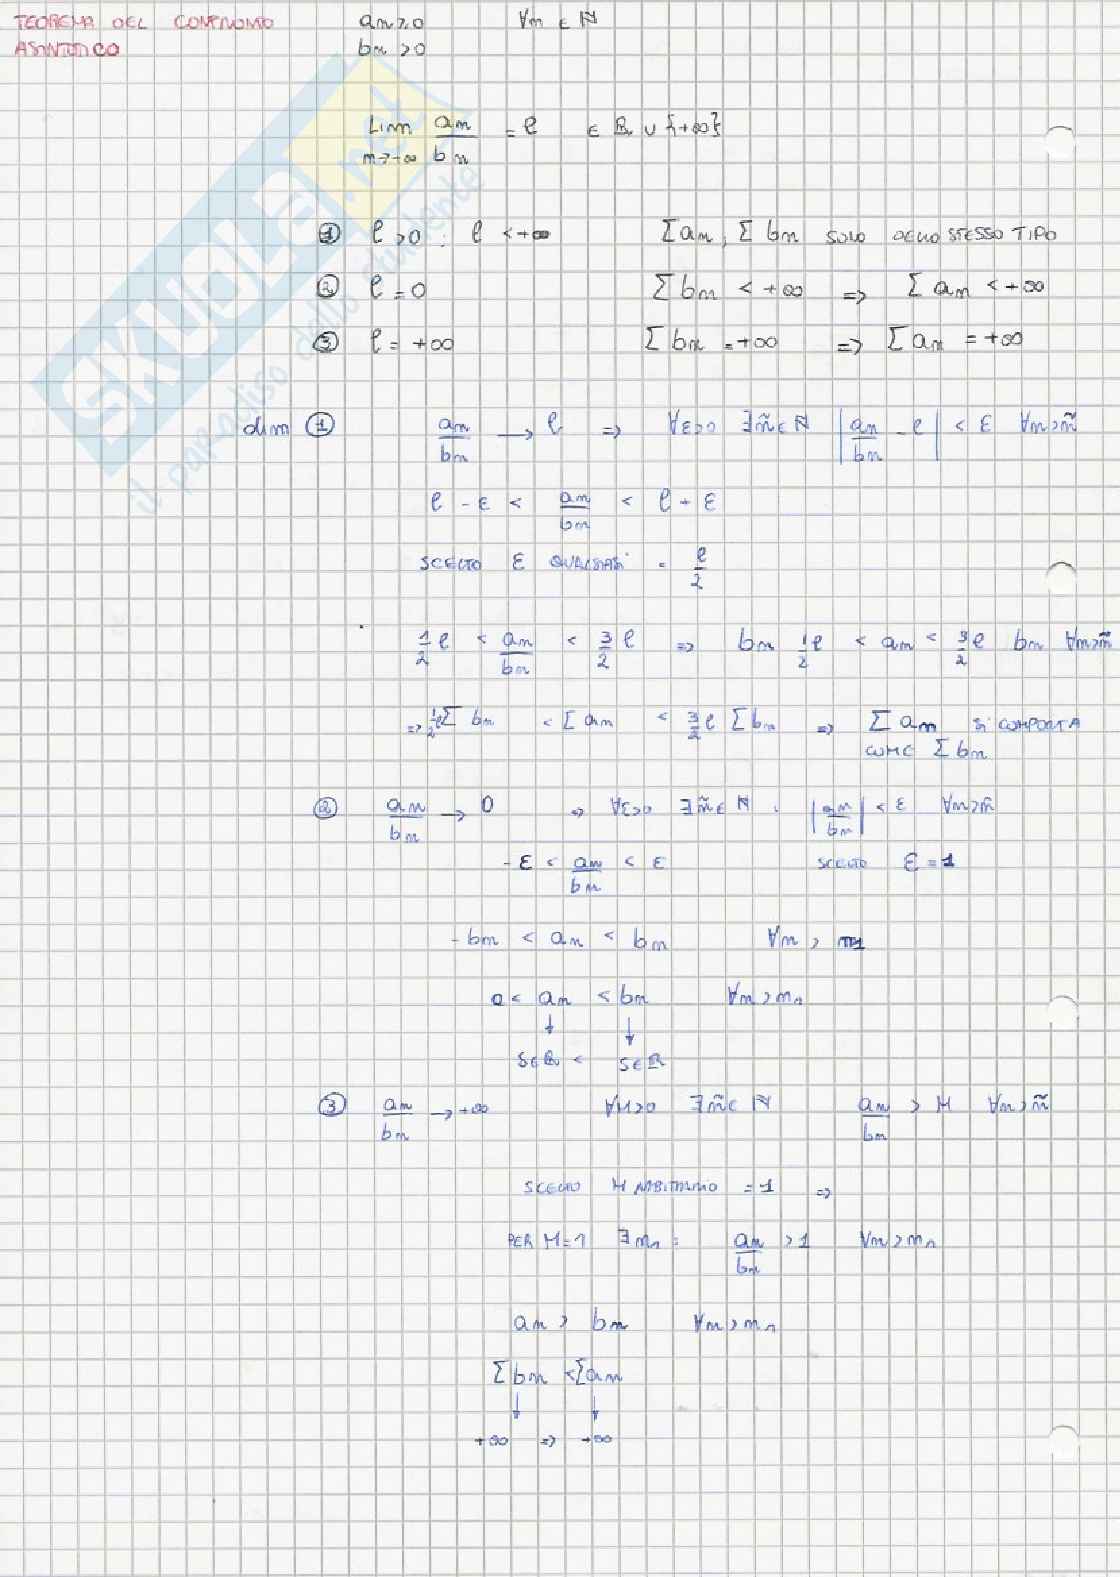 TEOREMA DEL CONFRONTO ASINTOTICO
an ≥ 0 ∀n ∈ ℕ
bn > 0
Lim n→+∞ an/bn = l ∈ ℝ ∪ {+∞}
① l > 0 ; l < +∞ Σan, Σbn SONO DELLO STESSO TIPO
② l = 0 Σbn < +∞ => Σan < +∞
③ l = +∞ Σbn = +∞ => Σan = +∞
dim ① an/bn → l => ∀ε>0 ∃ñ∈ℕ |an/bn - l| < ε ∀n>ñ
l - ε < an/bn < l + ε
SCELTO ε QUALSIASI = l/2
1/2 l < an/bn < 3/2 l => bn 1/2 l < an < 3/2 l bn ∀n>ñ
=> 1/2 l Σbn < Σan < 3/2 l Σbn => Σan SI COMPORTA
COME Σbn
② an/bn → 0 => ∀ε>0 ∃ñ∈ℕ : |an/bn| < ε ∀n>ñ
-ε < an/bn < ε SCELTO ε = 1
-bn < an < bn ∀n > n1
0 < an < bn ∀n > n1
↓ ↓
S∈ℝ < S∈ℝ
③ an/bn → +∞ ∀M>0 ∃ñ∈ℕ an/bn > M ∀n>ñ
SCELTO M ARBITRARIO = 1 =>
PER M=1 ∃n1 : an/bn > 1 ∀n>n1
an > bn ∀n>n1
Σbn < Σan
↓ ↓
+∞ => +∞
SKUOLA.net
il paradiso dello studente